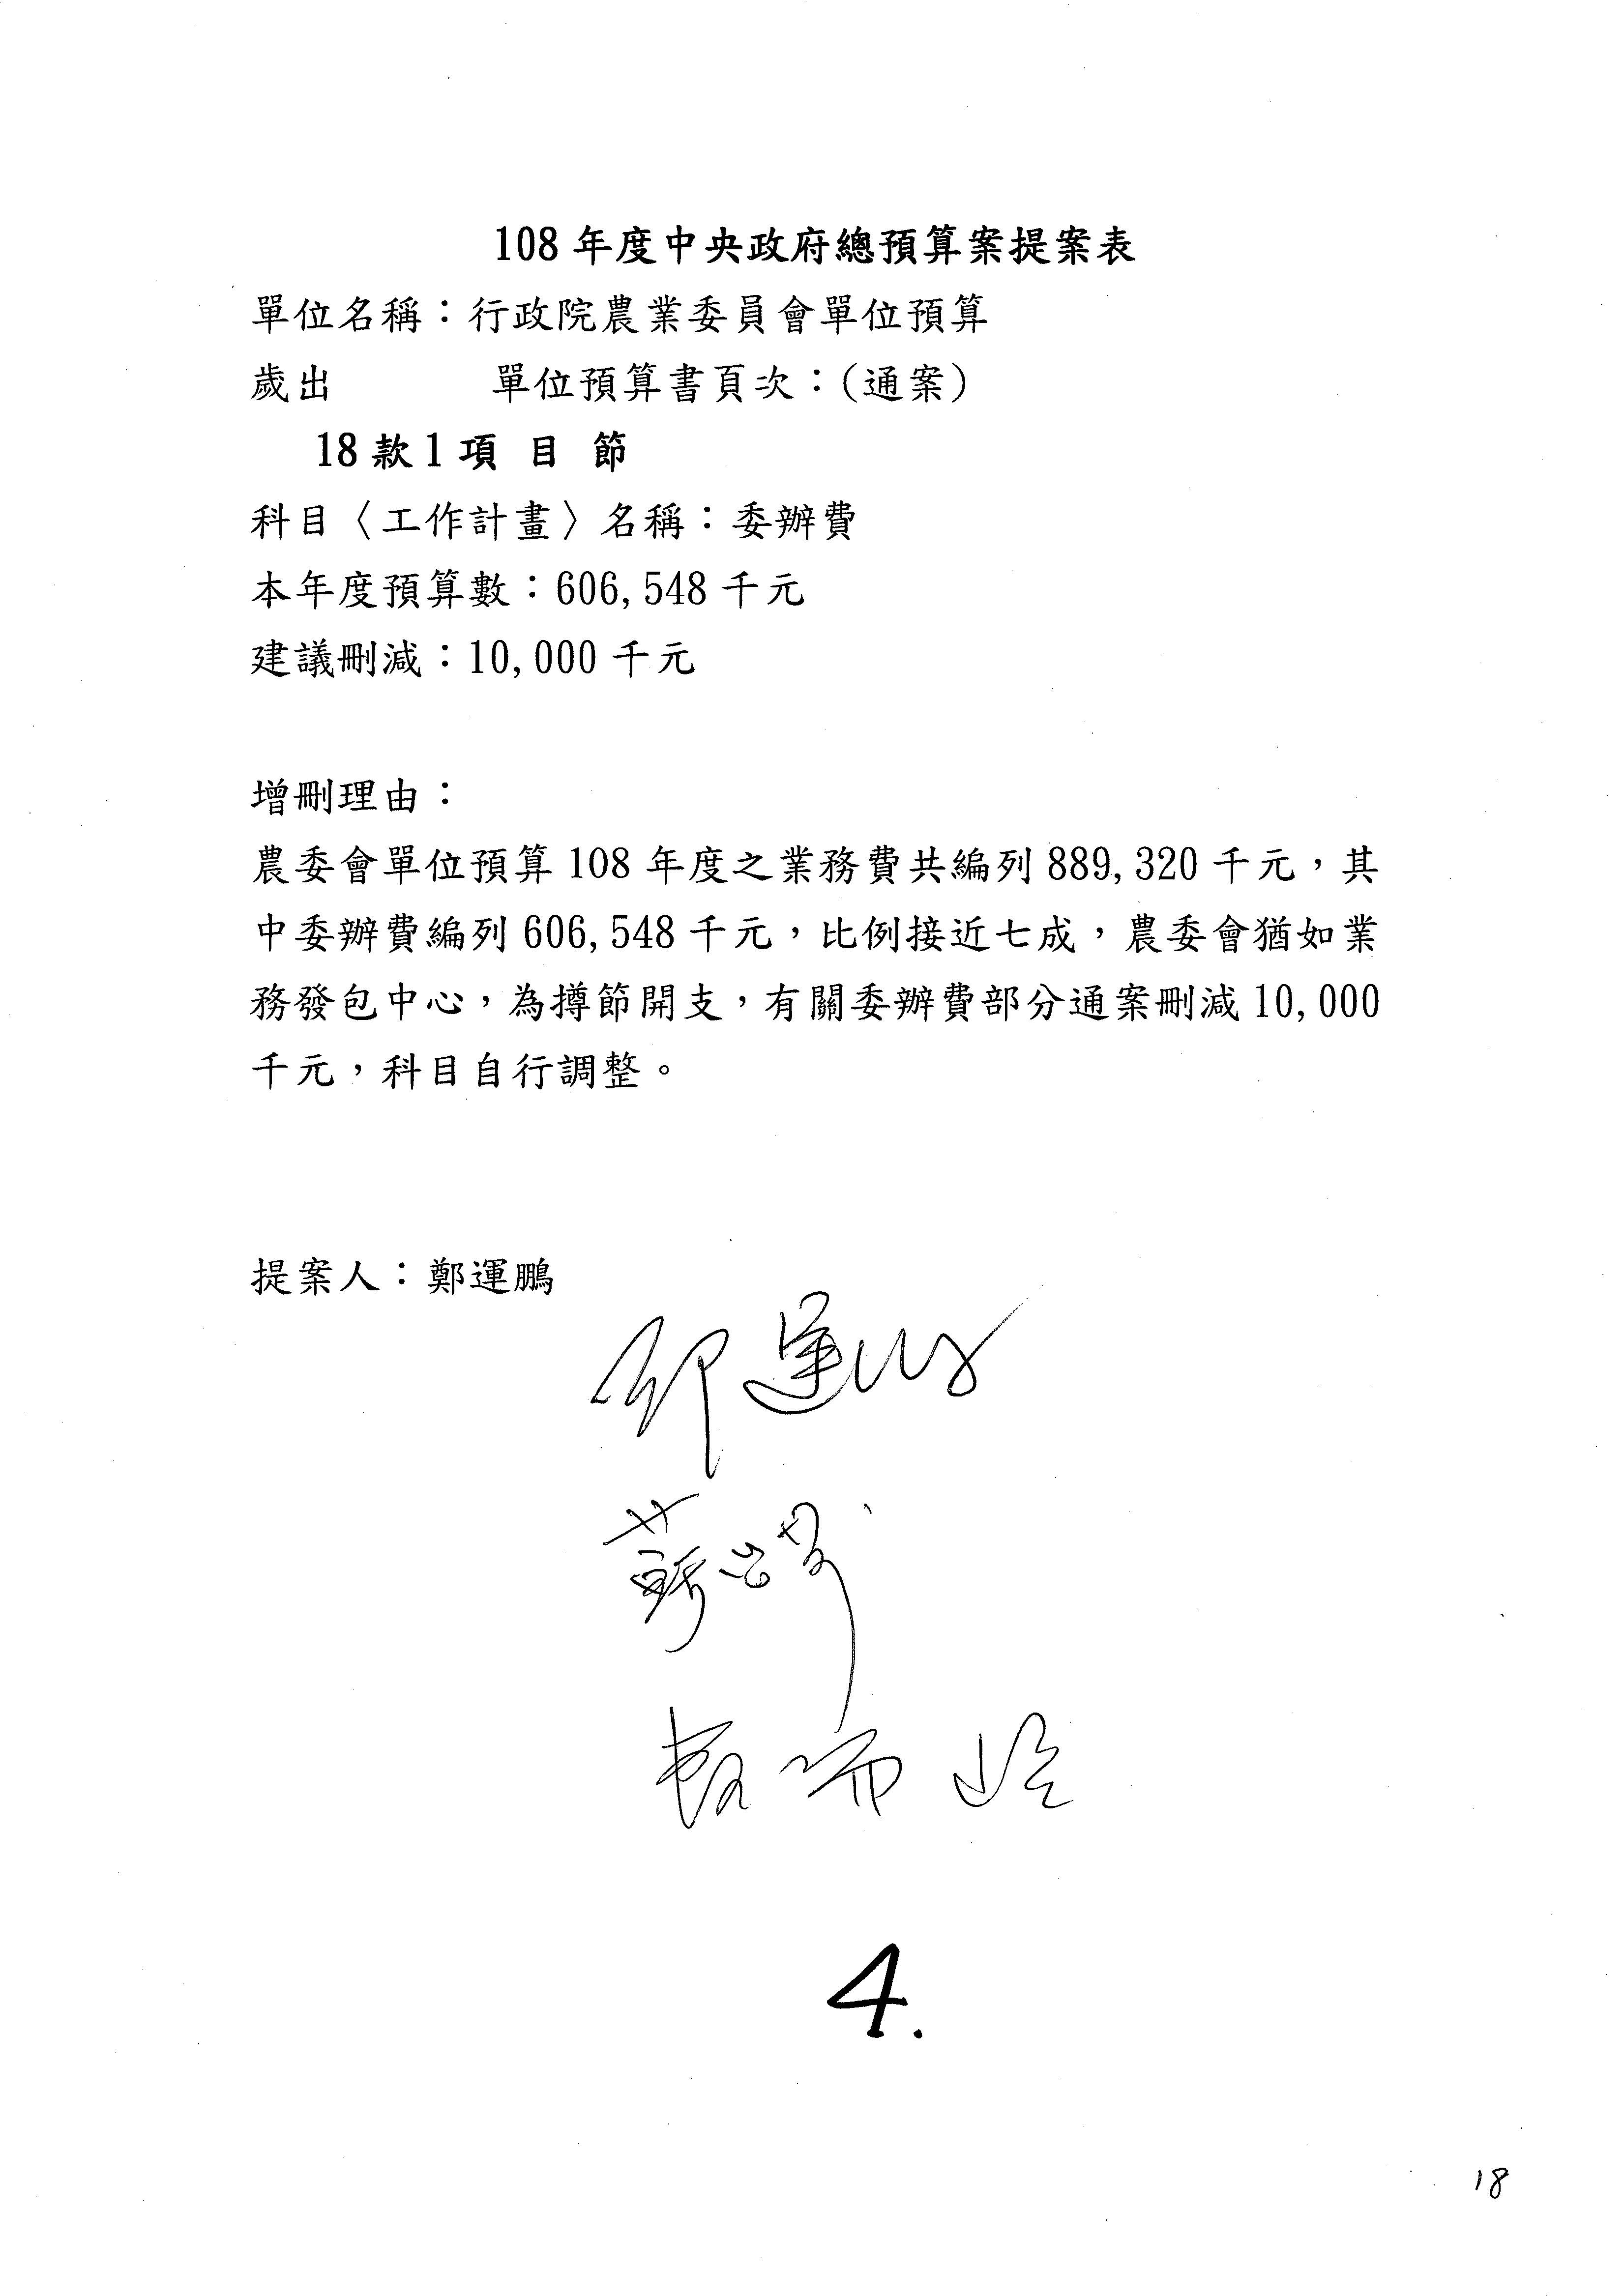 108 年度中央政府總預算案提案表
單位名稱：行政院農業委員會單位預算
歲出　　　單位預算書頁次：(通案)
18 款 1 項 目 節
科目〈工作計畫〉名稱：委辦費
本年度預算數：606,548 千元
建議刪減：10,000 千元
增刪理由：
農委會單位預算 108 年度之業務費共編列 889,320 千元，其
中委辦費編列 606,548 千元，比例接近七成，農委會猶如業
務發包中心，為撙節開支，有關委辦費部分通案刪減 10,000
千元，科目自行調整。
提案人：鄭運鵬
4.
18